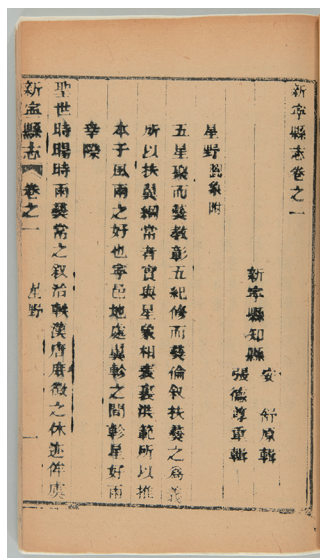 新寧縣志卷之一
新寧縣知縣
安 舒原輯
張德尊重輯
星野 圖象附
五星聚而文教彰五紀修而彝倫叙扶彝之為義
所以扶彝綱常者實與星象相表裏洪範所以推
本于風雨之好也寧邑地處翼軫之間軫星好雨
幸際
聖世時暘時雨彝常之叙治軼漢唐庶徵之休迹侔虞
新寧縣志 卷之一 星野 一